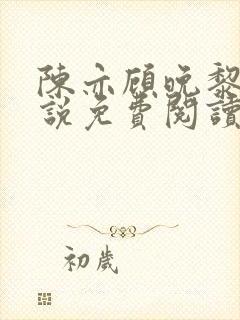 陳亦顧晚黎
說免費閱讀
初歲